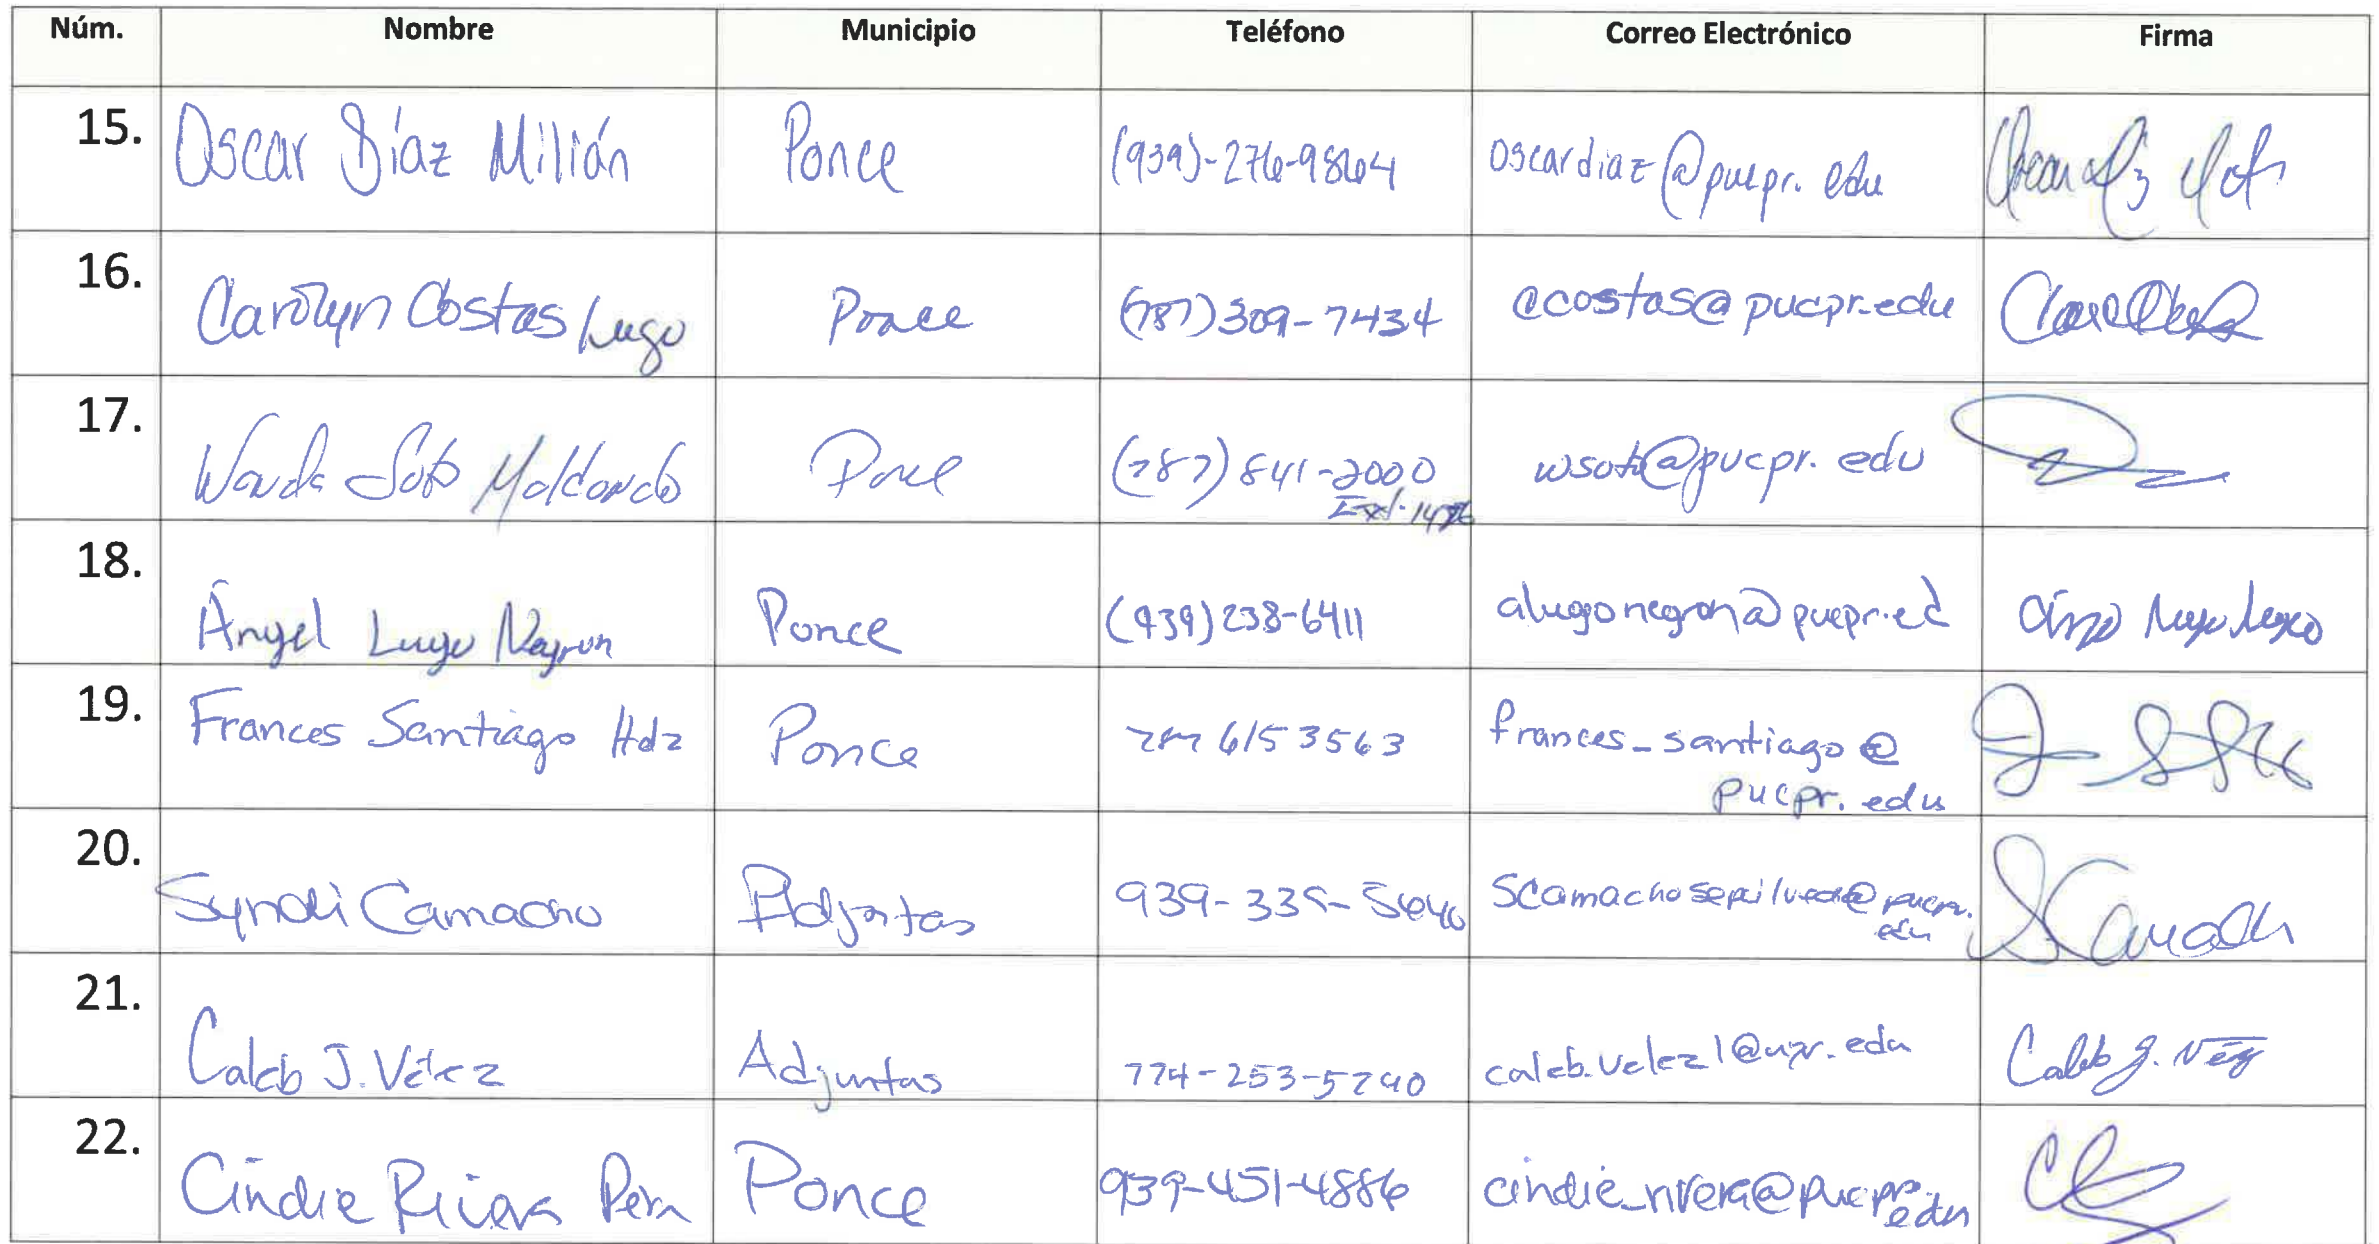 Núm. Nombre Municipio Teléfono Correo Electrónico Firma
15. Oscar Díaz Milián Ponce (939)-276-9864 oscardiaz@pucpr.edu
16. Carolyn Costas Lugo Ponce (787)309-7434 ccostas@pucpr.edu
17. Wanda Soto Maldonado Ponce (787) 841-2000 wsoto@pucpr.edu
Ext.
18. Ángel Lugo Negron Ponce (939)238-6411 alugonegron@pucpr.ed
19. Frances Santiago Hdz Ponce 787 615 3563 frances_santiago@
pucpr.edu
20. Syndi Camacho Adjuntas 939-335-5640 pucpr.
edu SCamacho
21. Caleb J. Vélez Adjuntas 774-253-5740 caleb.velez1@upr.edu Caleb J. Vélez
22. Cindie Rivera Ponce 939-451-4886 cindie_rivera@pucpr.
edu